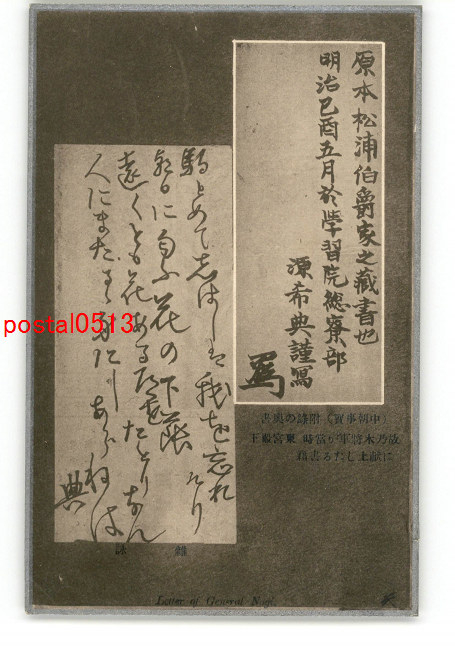 原本松浦伯爵家之藏書也
明治己酉五月於學習院總寮部
源希典謹寫
(中朝事實)附錄の奧書
故乃木將軍が當時 東宮殿下
に献上したる書籍
駒とめて志はし は我を忘れ
けり
朝日に匂ふ花の下蔭
遠くとも花ある道をたとりなん
人にまたるゝ身にしあらねは
典
雜 詠
Letter of General Nogi.
postal0513